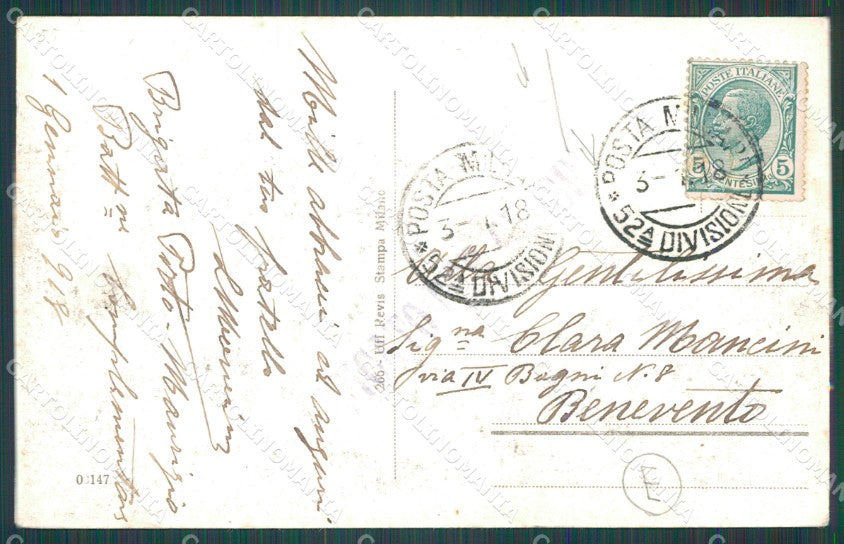 Mille abbracci ed auguri
dal tuo fratello
Brigata Porto-Maurizio
Battne Complementare
1 Gennaio 918
266 - Uff Revis Stampa Milano
POSTE ITALIANE
5 5
CENTESIMI
POSTA MILITARE
3- 1 18
* 52A DIVISIONE
POSTA MILITARE
3- 1 18
* 52A DIVISIONE
Gentilissima
Signa Clara Mancini
via IV Bagni N. 8
Benevento
147
CARTOLINOMANIA